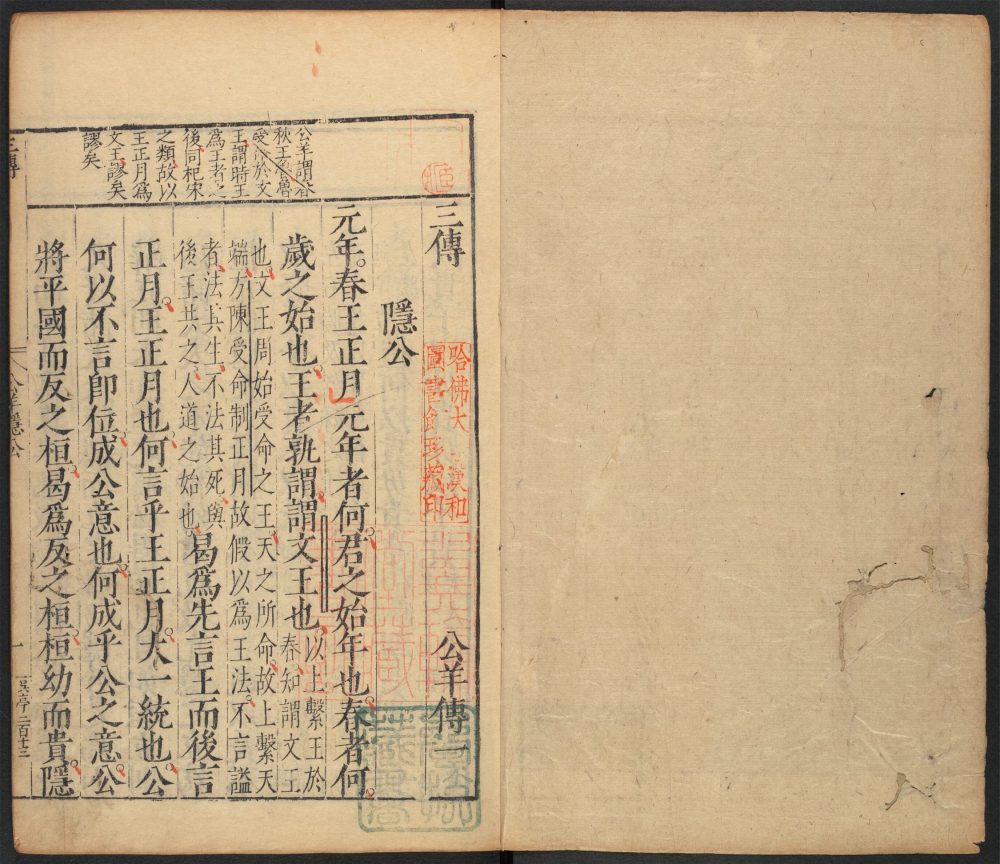 公羊謂春
秋王魯
受命於文
王謂時王
爲王者之
後同杞宋
之類故以
王正月爲
文王謬矣
謬矣
三傳 公羊傳一
隱公
元年。春王正月元年者何。君之始年也。春者何。
歲之始也。王者孰謂謂文王也。以上繫王於
春知謂文王
也文王周始受命之王天之所命故上繫天
端方陳受命制正月故假以爲王法不言謚
者法其生不法其死與
後王共之人道之始也
曷爲先言王而後言
正月。王正月也何言乎王正月。大一統也。公
何以不言卽位。成公意也何成乎公之意。公
將平國而反之桓。曷爲反之桓。桓幼而貴。隱
三傳
公羊隱公
一
二百廿三
哈佛大漢和
圖書館珍藏印